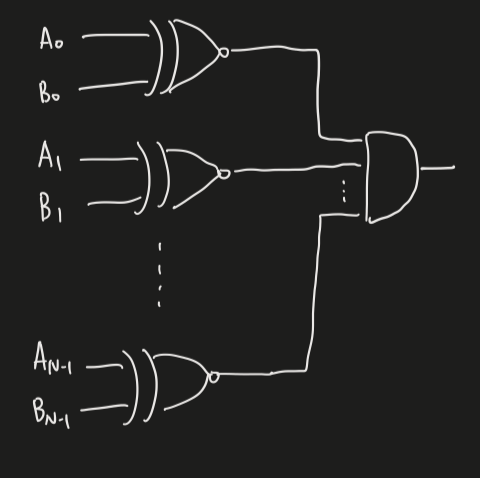 A₀
B₀
A₁
B₁
A_N-1
B_N-1